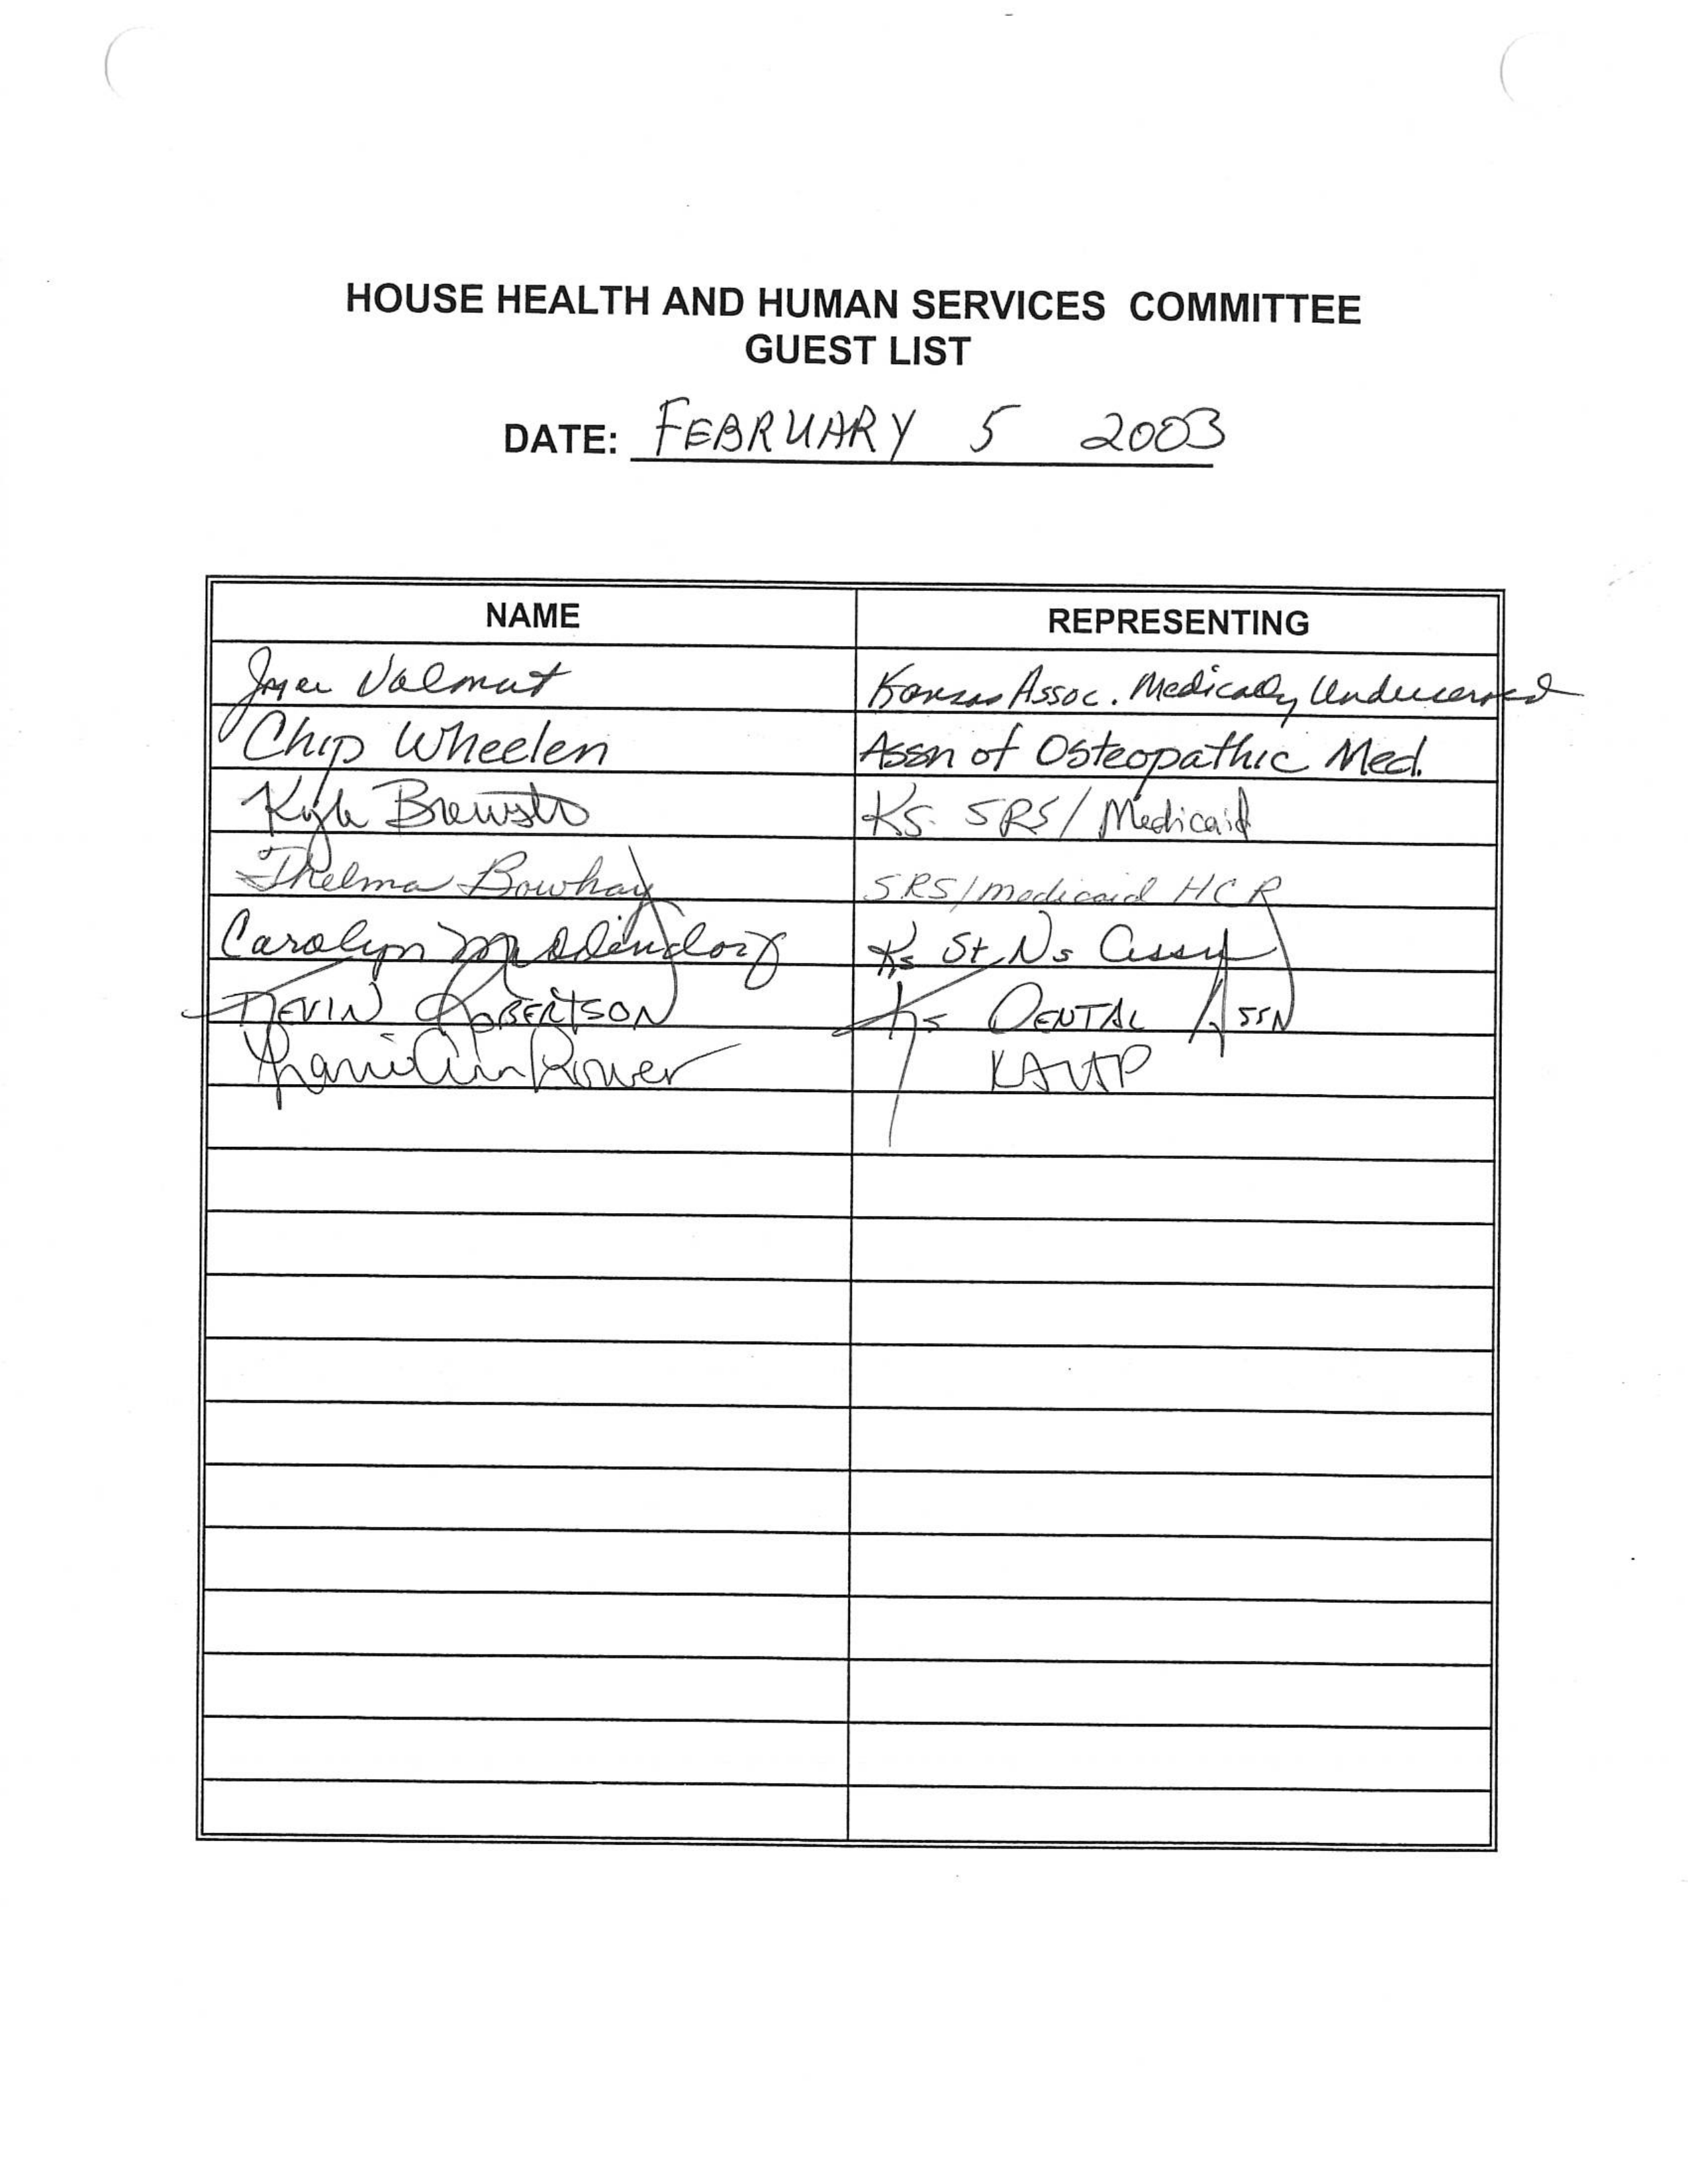 HOUSE HEALTH AND HUMAN SERVICES COMMITTEE
GUEST LIST
DATE: FEBRUARY 5 2003
NAME REPRESENTING
Kansas Assoc. Medically Underserved
Chip Wheelen Assn of Osteopathic Med.
Kyle Brewster Ks. SRS/Medicaid
Thelma Bowhay SRS/medicaid HCR
Carolyn Middendorf Ks St Ns Assn
KEVIN ROBERTSON Ks DENTAL ASSN